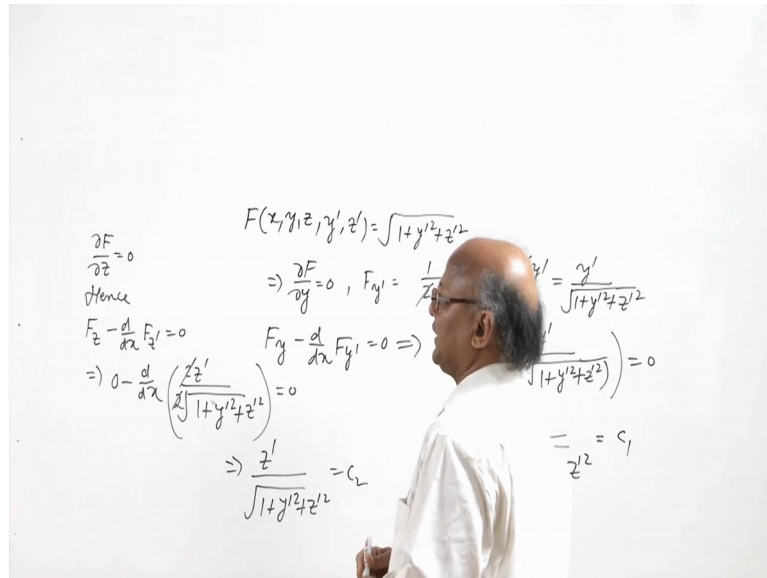 F(x, y, z, y', z') = √(1+y'²+z'²)
∂F/∂z = 0
Hence
F_z - d/dx F_z' = 0
⇒ 0 - d/dx (2z' / 2√(1+y'²+z'²)) = 0
⇒ z' / √(1+y'²+z'²) = c₂
⇒ ∂F/∂y = 0, F_y' = 1/2 y' = y' / √(1+y'²+z'²)
F_y - d/dx F_y' = 0 ⇒ √(1+y'²+z'²)) = 0
z'² = c₁